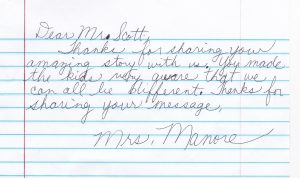 Dear Mr. Scott,
Thanks for sharing your
amazing story with us. You made
the kids very aware that we
can all be different. Thanks for
sharing your message.
Mrs. Manore